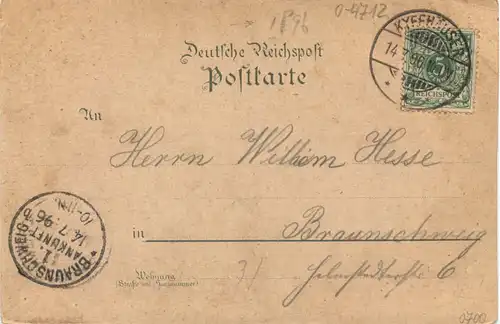 1896
0-4712
KYFFHÄUSER
14.7.96
REICHSPOST
Deutsche Reichspost
Postkarte
An
Herrn Wilhelm Hesse
in Braunschweig
Helmstedterstr 6
Wohnung
(Straße und Hausnummer)
BRAUNSCHWEIG
1
ANKUNFT
14.7.96
10-11N.
3/
0700